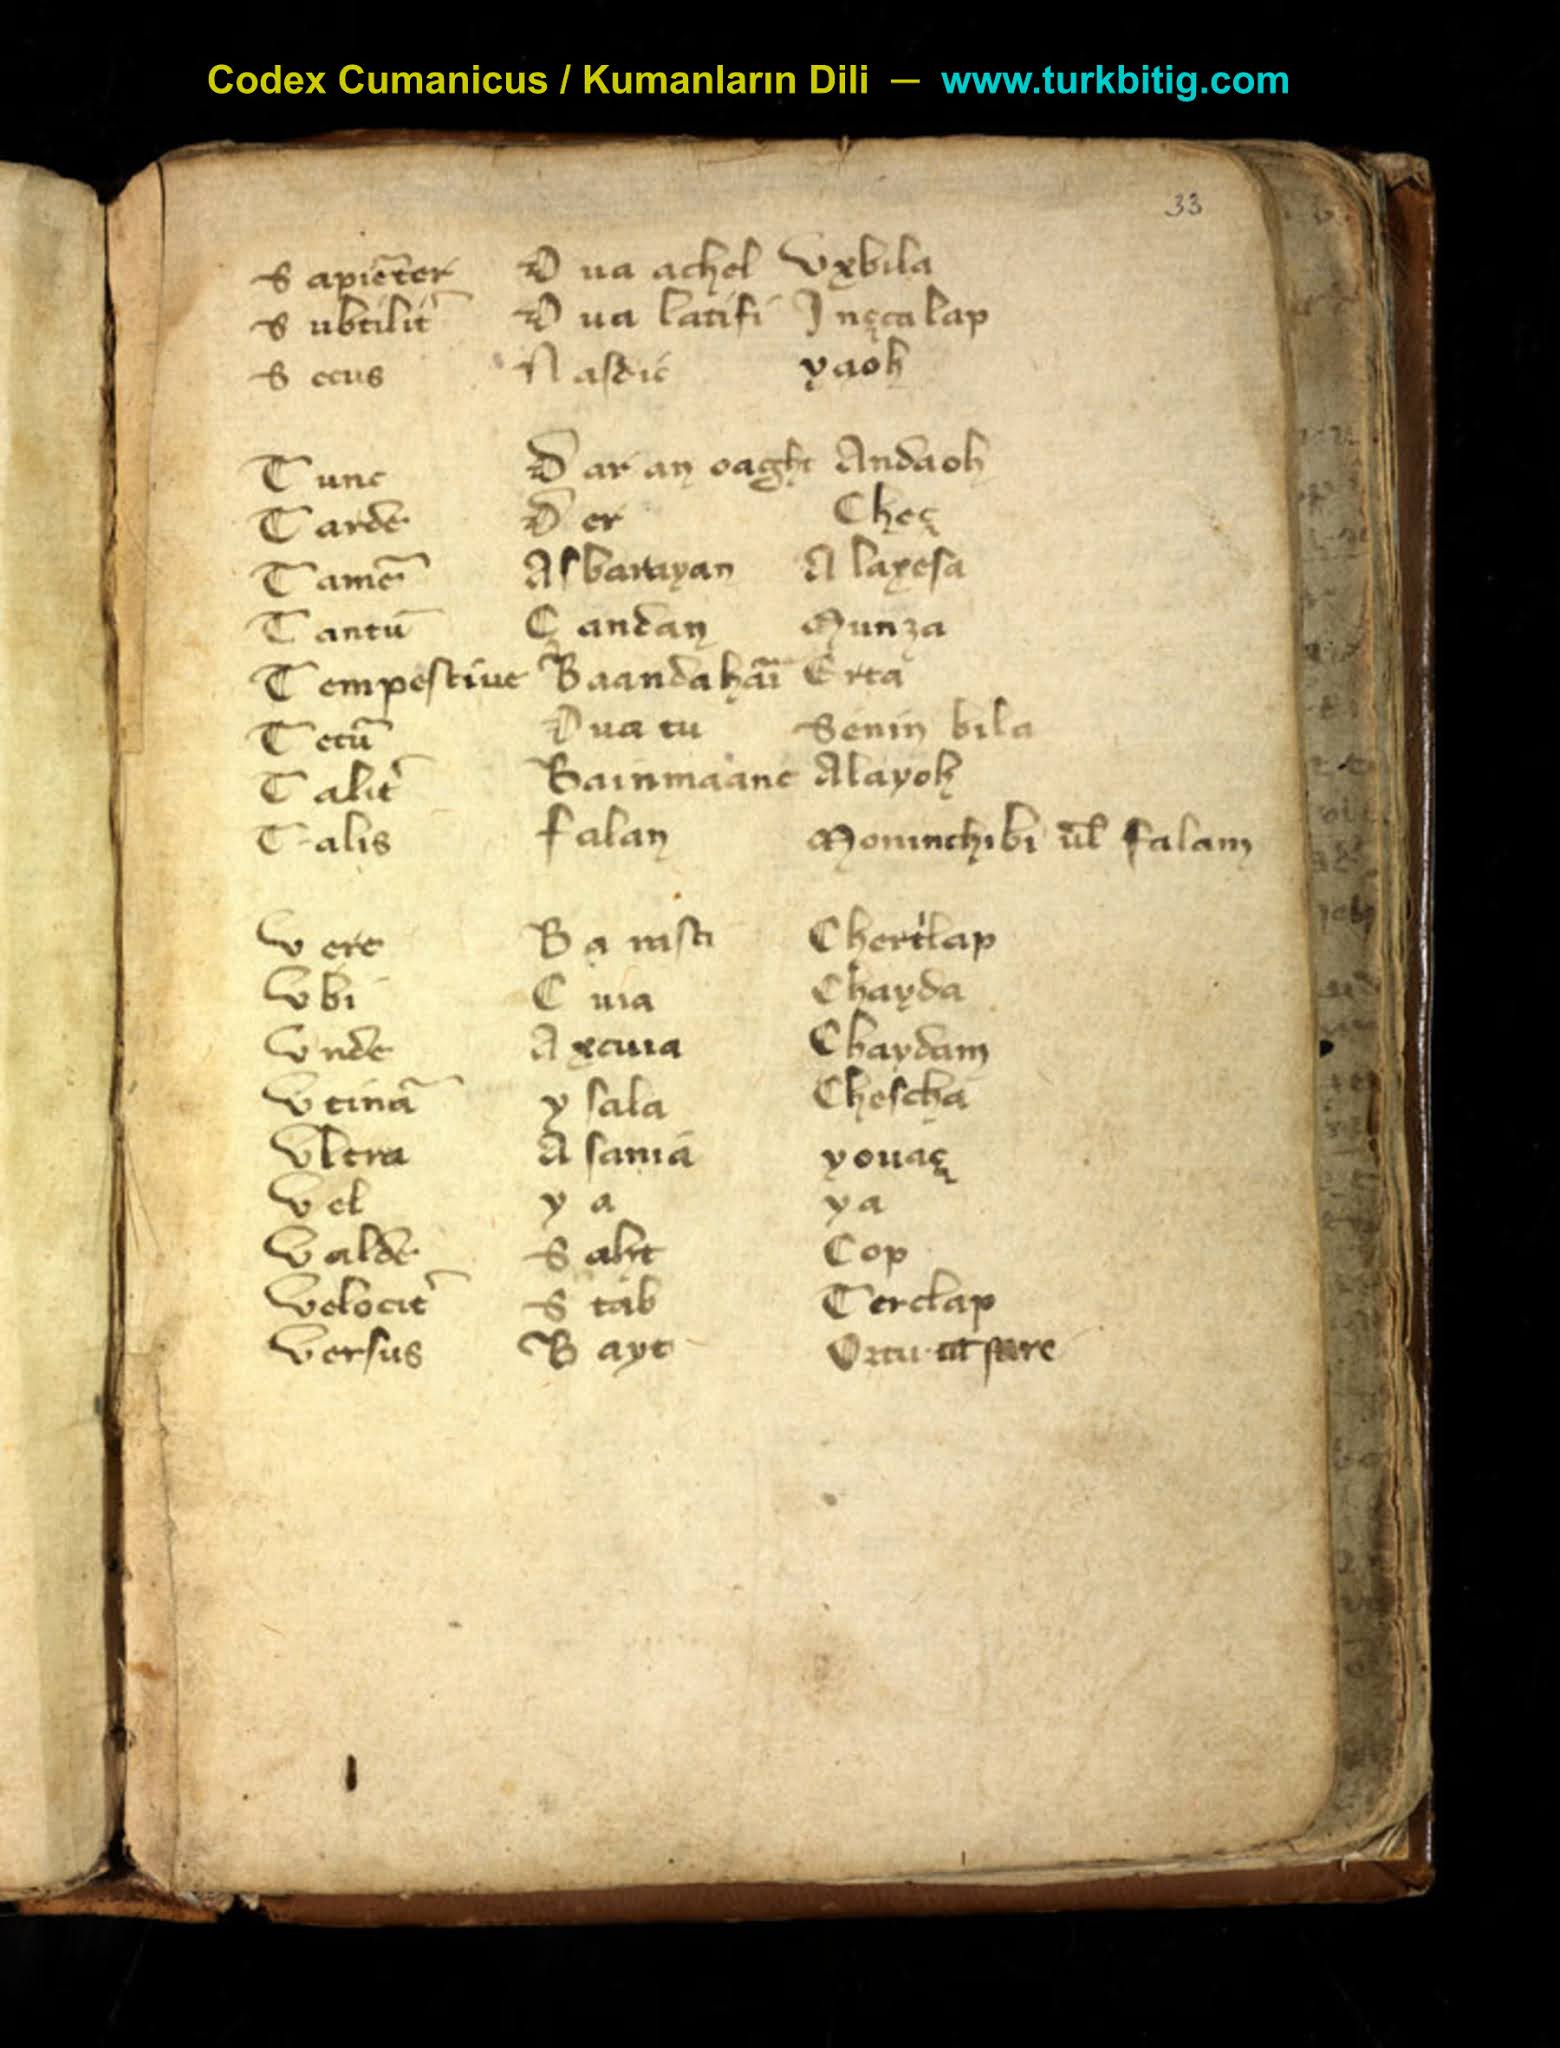 Codex Cumanicus / Kumanların Dili — www.turkbitig.com
33
Sapiēter Dua achel Vxbila
Subtilit' Dua latifi Inçcalap
Secus Nasdic yaoh
Tunc Dar an oaght Andaoh
Tarde Der Cheç
Tamē Asbarayan Alayesa
Tantū Çandan Munza
Tempestiue Baandahāi Erta
Tecū Dua tu Senin bila
Talit' Bainmaanc Alayoh
Talis falan Moninchibi ul̄ falam
Vere Ba rasti Chert'lap
Vbi Cuia Chayda
Vnde Axcuia Chaydam
Vtinā ysala Chescha
Vltra Asania youaç
Vel ya ya
Valde Saht Cop
Velocit' Stab Terclap
Versus Bayt Ortu